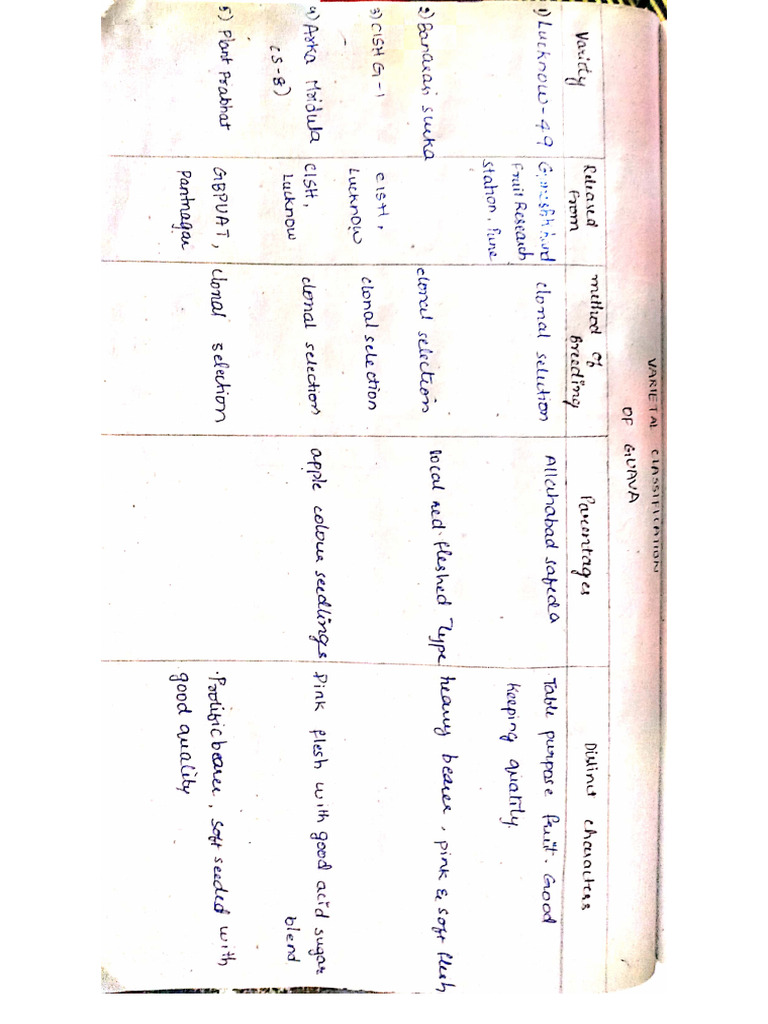 VARIETAL CLASSIFICATION
OF GUAVA
Variety
Released From
method of Breeding
Parentages
Distinct characters
1) Lucknow-49
Ganeshkhind
Fruit Research
Station, Pune
clonal selection
Allahabad safeda
Table purpose fruit. Good
keeping quality.
2) Banarasi surka
clonal selection
local red fleshed Type
heavy bearer, pink & soft flesh
3) CISH G-1
CISH,
Lucknow
clonal selection
4) Arka Mridula
(S-8)
CISH,
Lucknow
clonal selection
apple colour seedlings
Pink flesh with good acid sugar
blend
5) Plant Prabhat
GBPUAT,
Pantnagar
clonal selection
Prolific bearer, soft seeded with
good quality